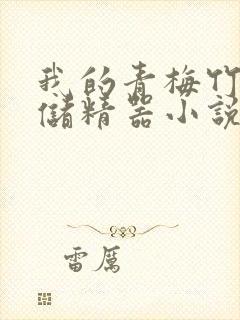 我的青梅竹
儲精器小説
雷厲